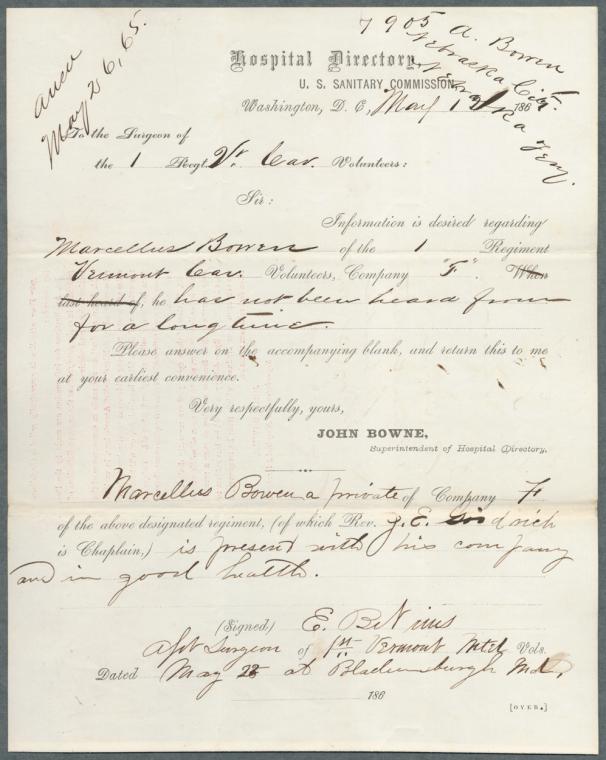 answ
May 26, 65.
7905 A. Bowen
Nebraska City.
Nebraska Ter.
Hospital Directory,
U. S. SANITARY COMMISSION,
Washington, D. C., May 186
To the Surgeon of
the 1 Regt. Vt. Cav. Volunteers:
Sir:
Information is desired regarding
Marcellus Bowen of the 1 Regiment
Vermont Cav. Volunteers, Company "F". When
last heard of, he has not been heard from
for a long time.
Please answer on the accompanying blank, and return this to me
at your earliest convenience.
Very respectfully, yours,
JOHN BOWNE,
Superintendent of Hospital Directory.
Marcellus Bowen a private of Company F
of the above designated regiment, (of which Rev. J. E. Goodrich
is Chaplain,) is present with his company
and in good health.
(Signed,) E. B. Nims
Asst Surgeon of 1st Vermont Vols.
Dated May 25 at Bladensburgh Md.
186
[OVER.]